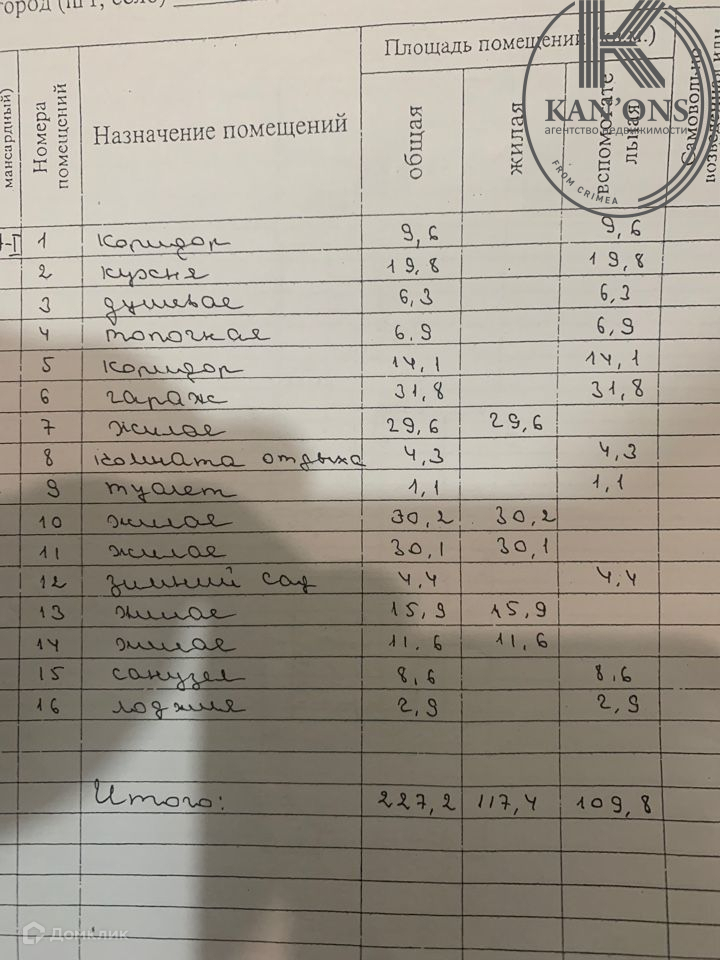 город (пгт, село)
Площадь помещений (кв.м.)
мансардный)
Номера помещений
Назначение помещений
общая
жилая
вспомогательная
Самовольно
возведенная или
KAN'ONS
агентство недвижимости
FROM CRIMEA
1 коридор 9,6 9,6
2 кухня 19,8 19,8
3 душевая 6,3 6,3
4 топочная 6,9 6,9
5 коридор 14,1 14,1
6 гараж 31,8 31,8
7 жилая 29,6 29,6
8 комната отдыха 4,3 4,3
9 туалет 1,1 1,1
10 жилая 30,2 30,2
11 жилая 30,1 30,1
12 зимний сад 4,4 4,4
13 жилая 15,9 15,9
14 жилая 11.6 11,6
15 санузел 8,6 8,6
16 лоджия 2,9 2,9
Итого: 227,2 117,4 109,8
Домклик